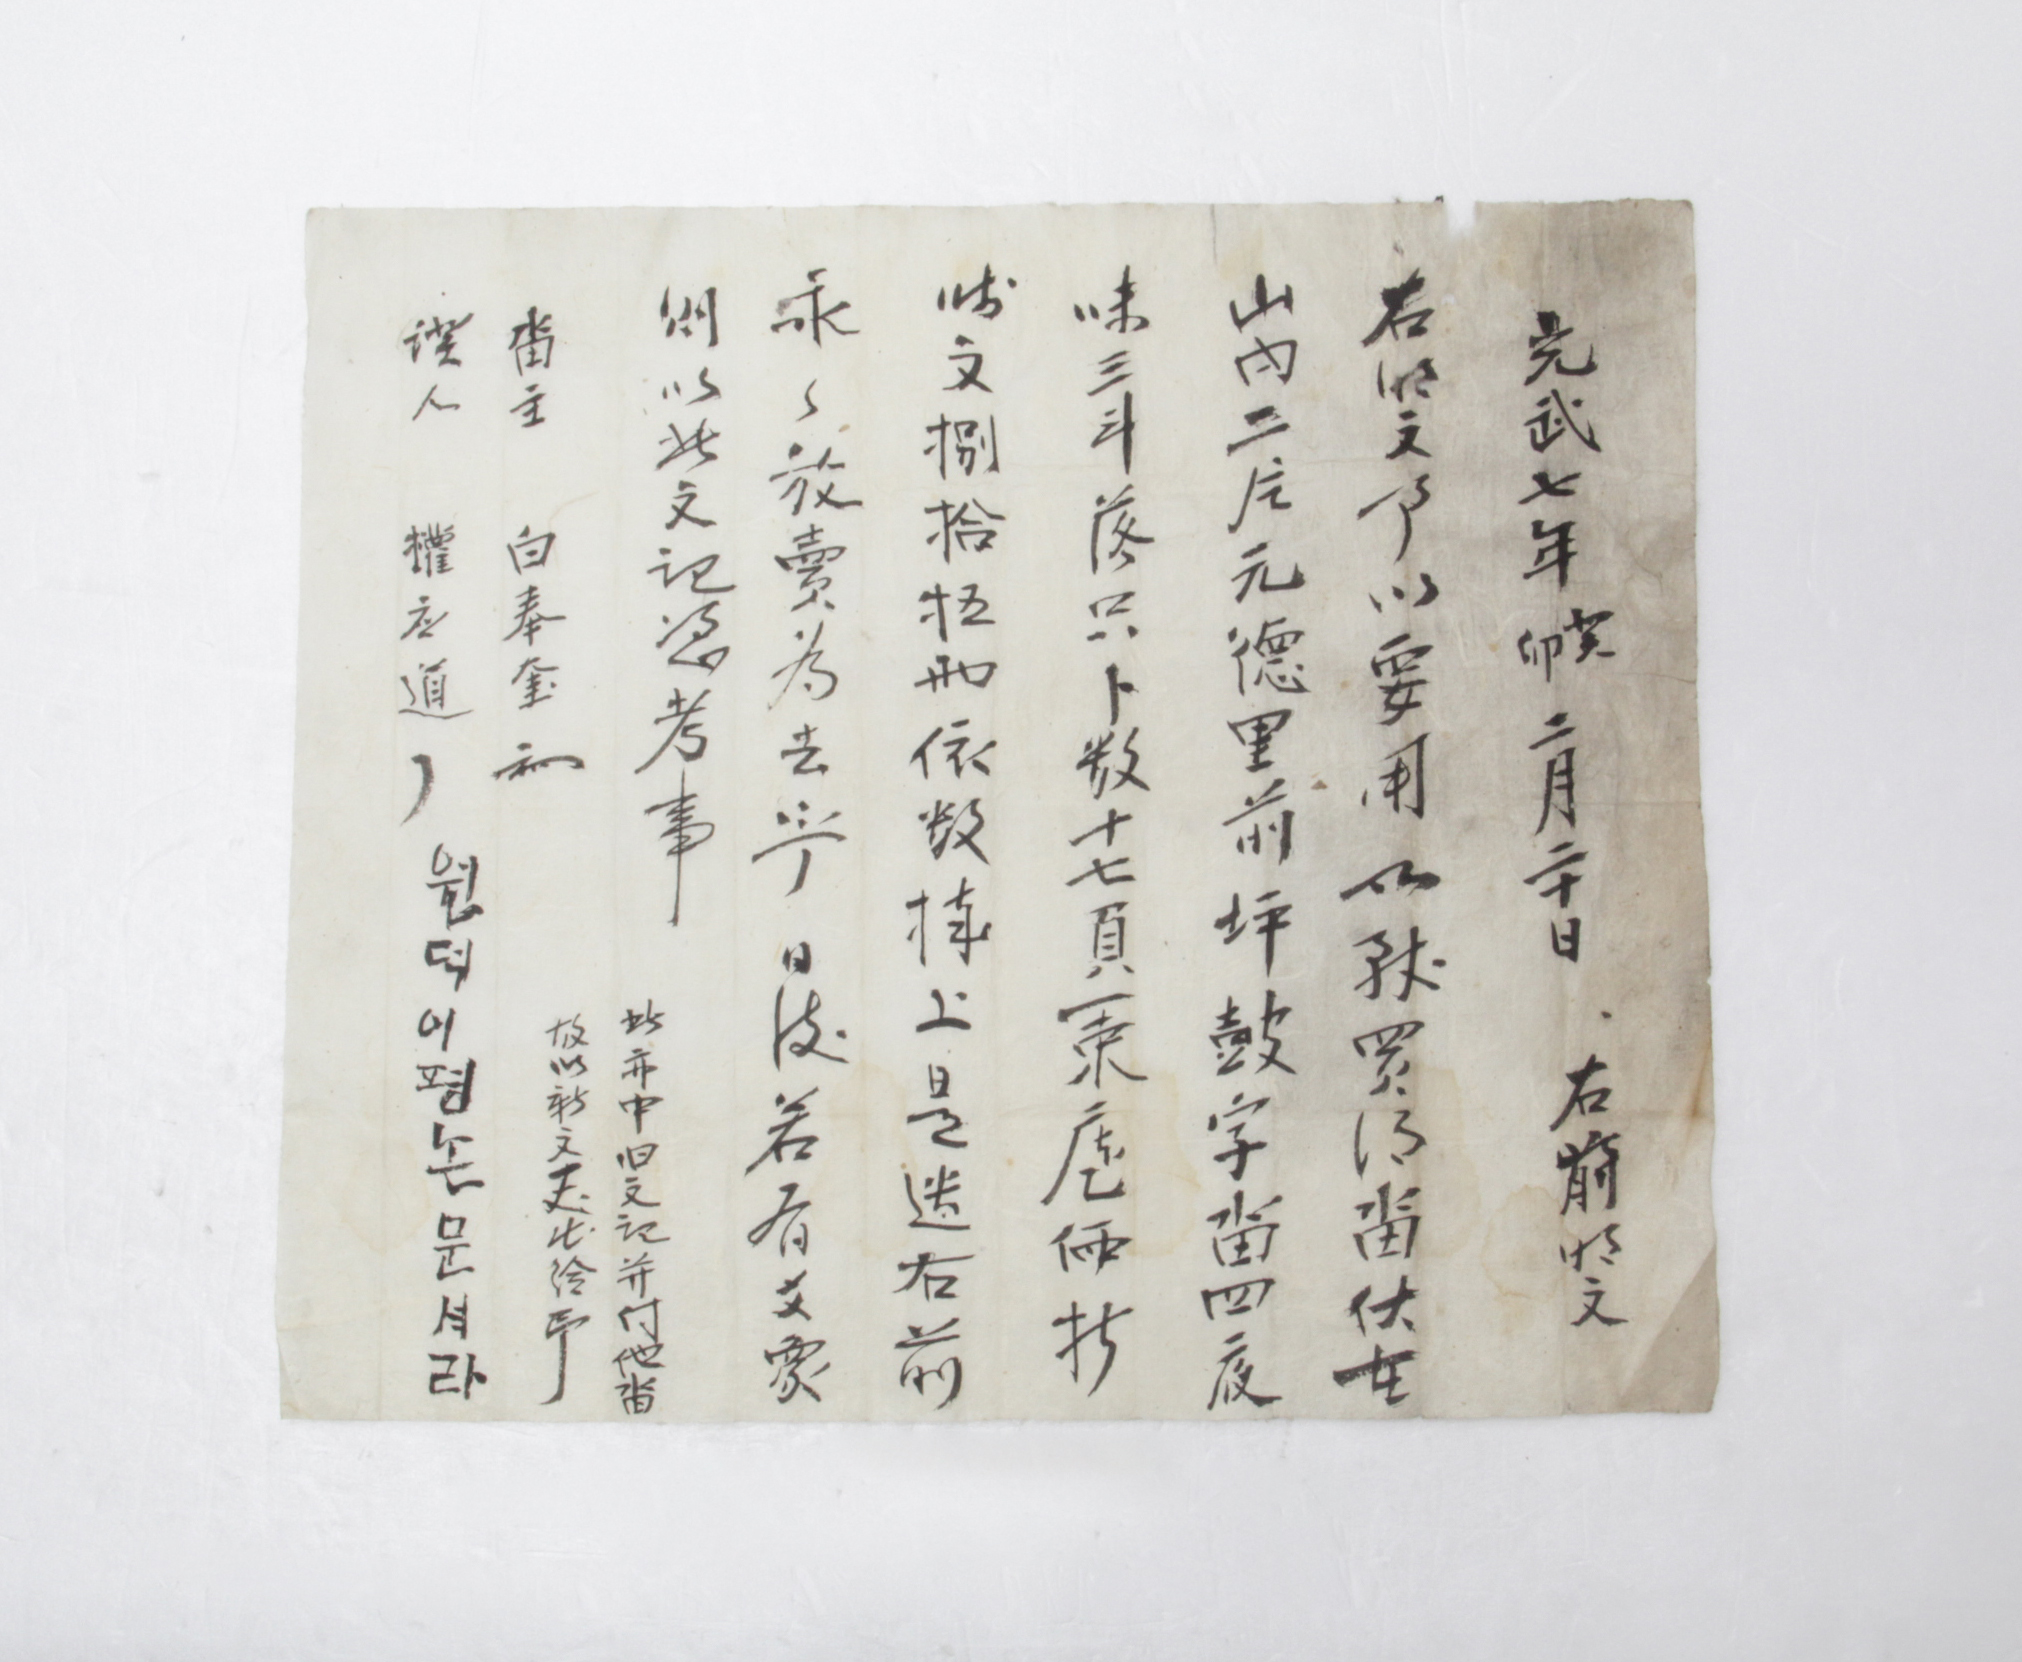 光武七年癸卯二月二十日 右前明文
右明文事以要用所致買得畓伏在
山內二片元德里前坪鼓字畓四夜
味三斗落只卜數十七負㐣庫価折
時文捌拾伍兩依數捧上是遣右前
永〻放賣為去乎日後若有爻象
則以此文記憑考事
此亦中旧文記并付他畓
故以新文表出給事
畓主 白奉奎
證人 權应道
원덕이평논문셔라